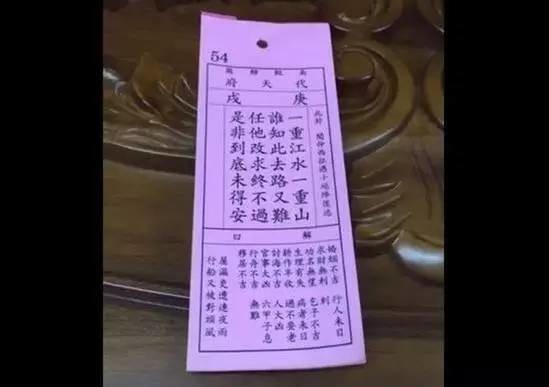 54
代天府
庚戌
一重江水一重山
誰知此去路又難
任他改求終不過
是非到底未得安
解曰
婚姻不吉
求財無利
功名無望
生理有失
耕作半收
討海不吉
官事大凶
行舟不吉
移居不吉
行人未日
到
不吉
病者未日
過不要老
人大凶
六甲子息
無難
屋漏更遭連夜雨
行船又被對頭風